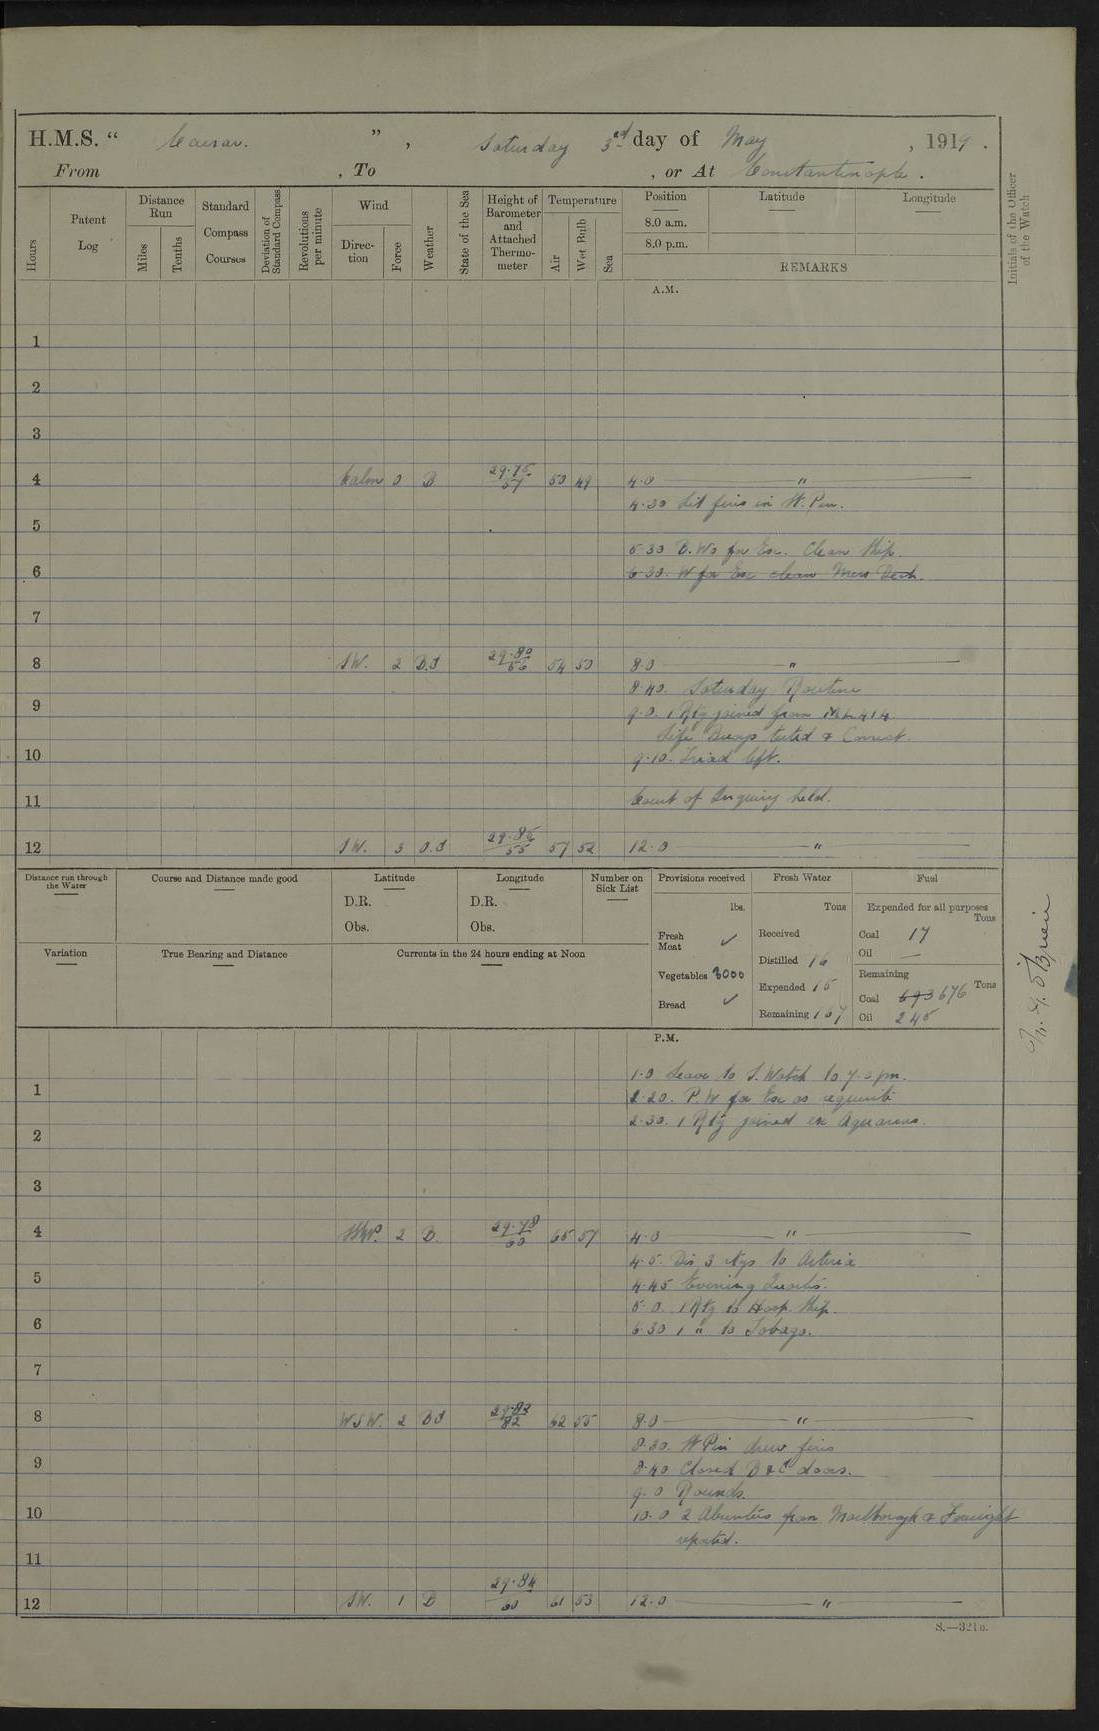 H.M.S. " Caesar. " , Saturday 3rd day of May , 1919 .
From , To , or At Constantinople .
Hours
Patent Log
Distance Run
Miles
Tenths
Standard Compass Courses
Deviation of Standard Compass
Revolutions per minute
Wind
Direction
Force
Weather
State of the Sea
Height of Barometer and Attached Thermometer
Temperature
Air
Wet Bulb
Sea
Position
8.0 a.m.
8.0 p.m.
Latitude
Longitude
REMARKS
Initials of the Officer of the Watch
A.M.
1
2
3
4 Calm 0 B 29.75 57 50 49 4.0 "
4.30 Lit fires in W. Pin.
5
5.30 B.Ws for Ex. Clean Ship.
6 6.30. W for Ex clean Mess Deck.
7
8 SW. 2 B.I 29.80 56 54 50 8.0 "
8.40. Saturday Routine
9 9.0. 1 Rtg joined from ML 414
Life Buoys tested & Correct.
10 9.10. Triad left.
11 Court of Inquiry held.
12 SW. 3 O.I 29.85 55 57 52 12.0 "
Distance run through the Water
Course and Distance made good
Latitude
D.R.
Obs.
Longitude
D.R.
Obs.
Number on Sick List
Provisions received
lbs.
Fresh Meat ✓
Vegetables 3000
Bread ✓
Fresh Water
Tons
Received
Distilled 16
Expended 15
Remaining 167
Fuel
Expended for all purposes
Tons
Coal 17
Oil —
Remaining
Tons
Coal 693 676
Oil 245
Variation
True Bearing and Distance
Currents in the 24 hours ending at Noon
O'Brien
P.M.
1.0 Leave to S. Watch to 7.0 pm.
1 2.20. P.W for Ex as requisite
2.30. 1 Rtg joined ex Aquarius.
2
3
4 2 B. 29.78 60 65 57 4.0 "
4.5. Dis 3 rtgs to Asteria
5 4.45 Evening Quarters.
5.0. 1 Rtg to Hosp. Ship.
6 6.30 1 " to Tobago.
7
8 WSW. 2 BI 29.82 82 62 55 8.0 "
8.30. W Pin drew fires
9 8.40 Closed B & C doors.
9.0 Rounds.
10 10.0 2 Absentees from Marlborough & Foresight
reported.
11
12 SW. 1 B 29.84 60 61 53 12.0 "
S.—321b.